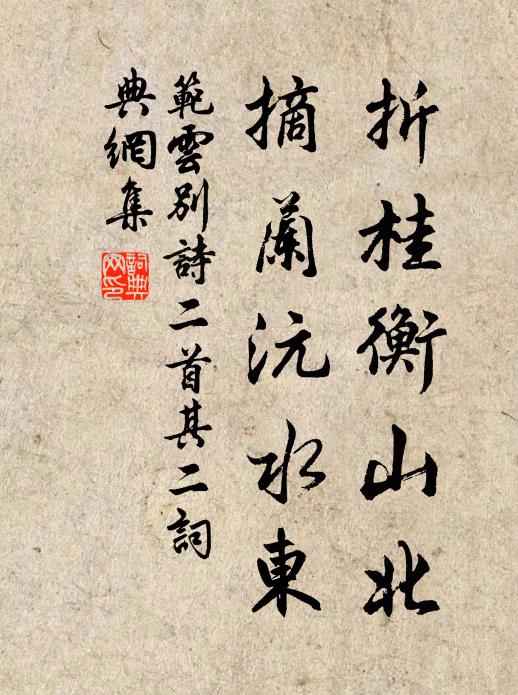 折桂衡山北
摘蘭沅水東
範雲別詩二首其二詞
典網集
詞典網印